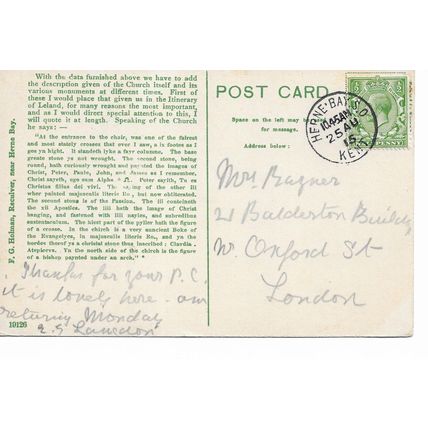 With the data furnished above we have to add
the description given of the Church itself and its
various monuments at different times. First of
these I would place that given us in the Itinerary
of Leland, for many reasons the most important,
and as I would direct special attention to this, I
will quote it at length. Speaking of the Church
he says :—
"At the entrance to the chair, was one of the fairest
and most stately crosses that ever I saw, a ix footes as I
ges yn hight. It standeth lyke a fayr columne. The base
greate stone ys not wrought. The second stone, being
round, hath curiously wrought and paynted the images of
Christ, Peter, Paule, John, and James as I remember.
Christ sayeth, ego sum Alpha & Ω. Peter sayith, Tu es
Christus filius dei vivi. The saying of the other iii
wher painted majusculis literis Ro., but now obliterated.
The second stone is of the Passion. The iii conteineth
the xii Apostles. The iiii hath the image of Christ
hanging, and fastened with iiii nayles, and subrediens
sustentaculum. The hiest part of the pyller hath the figure
of a crosse. In the chirch is a very auncient Boke of the
Evangelyes, in majusculis literis Ro., and ya the
bordes therof ya a christal stone thus inscribed: Clardia .
Atepiccus. Yn the north side of the chirch is the figure
of a bishop paynted under an arch."
F. G. Holman, Reculver, near Herne Bay.
Thanks for your P.C.
it is lovely here - am
returning Monday
10126
POST CARD.
Space on the left may be
for message.
Address below:
HERNE·BAY S.O.
10.45AM
25 AU
15
KENT
PENNY
Mrs Bagner
21 Balderton Buildgs
W. Oxford St
London